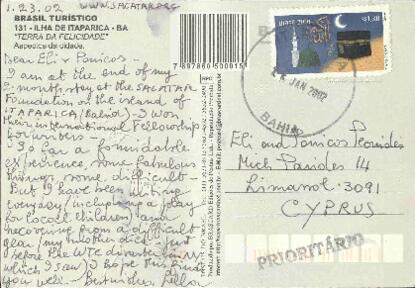 1.23.02 www.SACATAR.ORG
BRASIL TURÍSTICO
131 - ILHA DE ITAPARICA - BA
"TERRA DA FELICIDADE"
Aspectos da cidade.
Dear Eli + Panicos -
I am at the end of my
2-month stay at the SACATAR
Foundation on the island of
ITAPARICA (Bahia) - I won
their International Fellowship
for writers -
So far a formidable
experience, some fabulous
things, some difficult -
But I have been writing
everyday / including a play
for local children / and
recovering from a difficult
year / my mother died just
before the WTC disaster
which I saw / I hope this finds
you well - Best wishes,
7 897860 500015
BRASIL 2001
R$ 1,30
JAN 2002
BAHIA
Eli and Panicos Peonides
Mich Parides 14
Limassol 3091
CYPRUS
PRIORITÁRIO